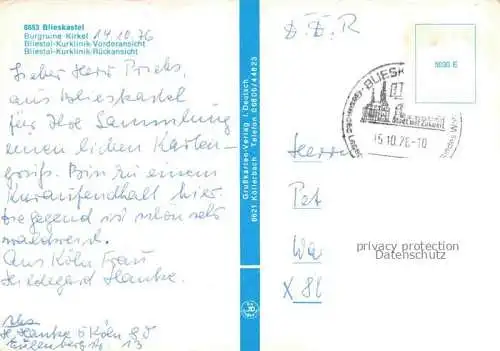 6653 Blieskastel
Burgruine Kirkel 14.10.76
Bliestal-Kurklinik/Vorderansicht
Bliestal-Kurklinik/Rückansicht
Lieber Herr
aus Blieskastel
für Ihre Sammlung
einen lieben Karten-
gruß. Bin zu einem
Kuraufenthalt hier.
Die Gegend ist schon sehr
Aus Köln Frau
Hildegard Hanke.
Abs
H. Hanke 5 Köln 80
13
Großkarten-Verlag I. Deutsch
6621 Köllerbach · Telefon 06806/44823
D.D.R
5030 E
BLIESK
15.10.76-10
Herrn
Pet
Wa
X 81
privacy protection
Datenschutz